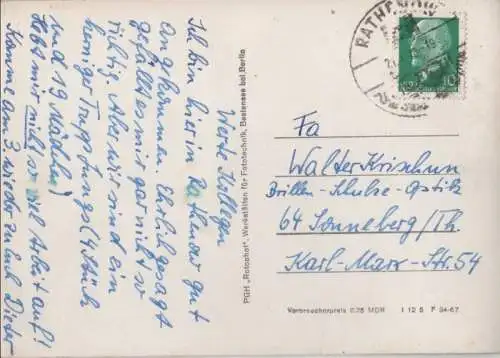 Werte Kollegen
Ich bin hier in Rathenow gut
angekommen. Ehrlich gesagt
gefällts mir gar nicht so
richtig. Aber wir sind ein
Trupp Jungs (4 Stück
und 19 Mädeln)
Hebt mir nicht so viel Arbeit auf!
Komme am 3. wieder zu Euch Dieter
PGH „Rotophot", Werkstätten für Fototechnik, Bestensee bei Berlin
RATHENOW
10
Fa
Walter Krischun
Brillen-Schulze-Optik
64 Sonneberg/Th.
Karl-Marx-Str. 54
Verbraucherpreis 0,25 MDN I 12 5 F 34-67